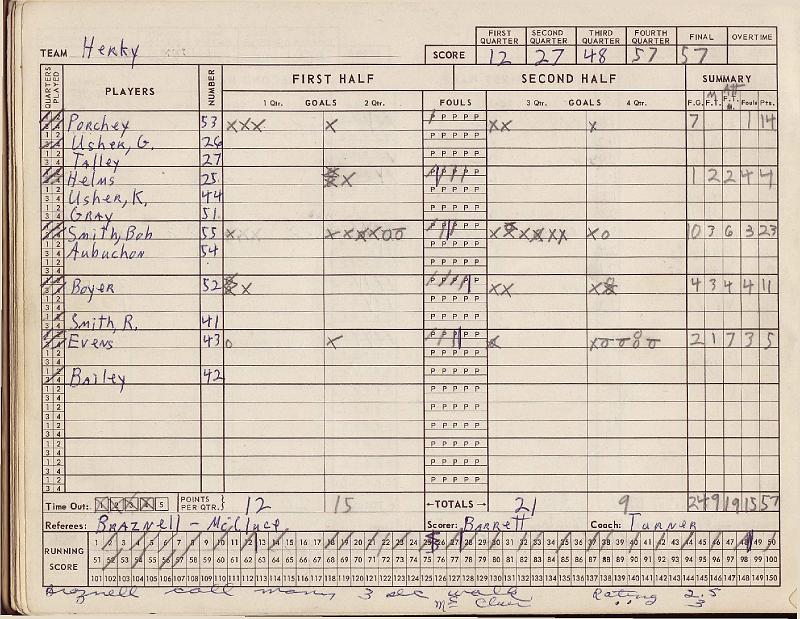 FIRST QUARTER SECOND QUARTER THIRD QUARTER FOURTH QUARTER FINAL OVERTIME
TEAM Herky SCORE 12 27 48 57 57
QUARTERS PLAYED PLAYERS NUMBER FIRST HALF SECOND HALF SUMMARY
1 Qtr. GOALS 2 Qtr. FOULS 3 Qtr. GOALS 4 Qtr. F.G. F.T. F.T. Fouls Pts.
Porchey 53 xxx x P P P P P xx x 7 1 14
Usher, G. 26
Talley 27
Helms 25 x P P P P P 1 2 2 4 4
Usher, K. 44
Gray 51
Smith, Bob 55 P P P P P xo 10 3 6 3 23
Aubuchon 54
Boyer 52 P P P P P xx 4 3 4 4 11
Smith, R. 41
Evens 43 o x P P P P P 2 1 7 3 5
Bailey 42
Time Out: 1 2 3 4 5 POINTS PER QTR. 12 15 ←TOTALS→ 21 9 24 9 19 15 57
Referees: Braznell - McClure Scorer: Barrett Coach: Turner
RUNNING SCORE
1 2 3 4 5 6 7 8 9 10 11 12 13 14 15 16 17 18 19 20 21 22 23 24 25 26 27 28 29 30 31 32 33 34 35 36 37 38 39 40 41 42 43 44 45 46 47 48 49 50
51 52 53 54 55 56 57 58 59 60 61 62 63 64 65 66 67 68 69 70 71 72 73 74 75 76 77 78 79 80 81 82 83 84 85 86 87 88 89 90 91 92 93 94 95 96 97 98 99 100
101 102 103 104 105 106 107 108 109 110 111 112 113 114 115 116 117 118 119 120 121 122 123 124 125 126 127 128 129 130 131 132 133 134 135 136 137 138 139 140 141 142 143 144 145 146 147 148 149 150
Braznell call many 3 sec walk Rating 2.5
Mc Clure " " 3